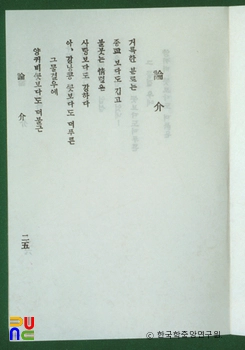 論介
거룩한 분노는
종교 보다도 깁고
불붓는 情熱은
사랑보다도 강하다
아, 강낭콩 꼿보다도 더푸른
그물결우에
양귀비 꼿보다도 더붉은
論介
二五
ⓒ한국학중앙연구원